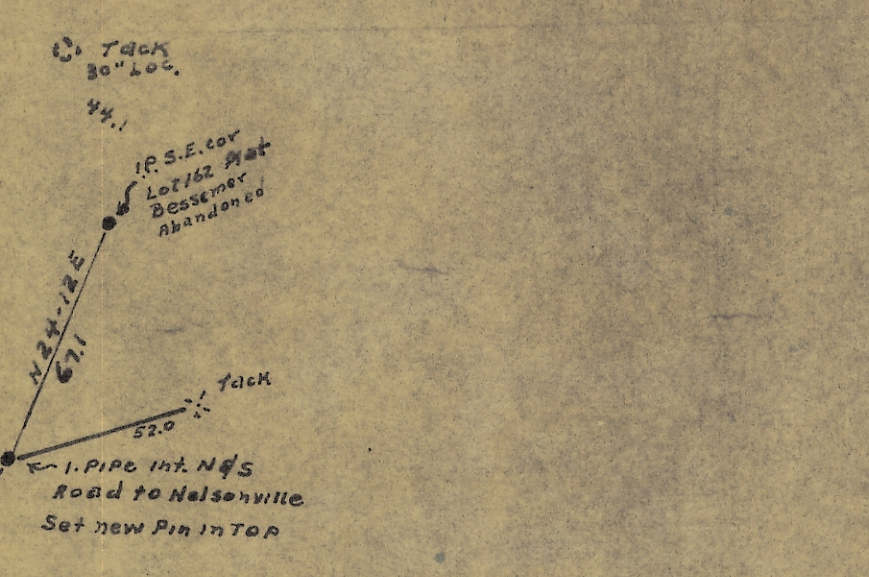 Tack
30" Loc.
44.1
I.P. S.E. cor
Lot 162 Plat
Bessemer
Abandoned
N24-12E
67.1
Tack
52.0
I. Pipe int. N&S
Road to Nelsonville
Set new Pin in Top